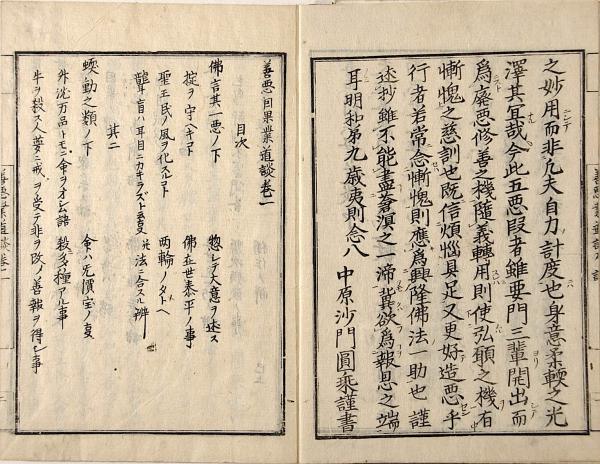 之妙用而非凡夫自力計度也身意柔輭之光
澤其耳哉今此五惡段者雖要門三輩開出而
爲廢悪修善之機隨義轉用則使弘願之機有
慚愧之慈訓也既信煩惱具足又更好造悪乎
行者若常念慚愧則應爲興隆佛法一助也謹
述抄雖不能盡蒼溟之一渧冀欲爲報恩之端
耳明和第九歳夷則念八 中原沙門圓乘謹書
善悪因果業道談巻一
目次
佛言其一悪ノ下 惣シテ大意ヲ述ス
掟ヲ守ヘキコト 佛在世泰平ノ事
聖王民ノ風ヲ化スルコト 両輪ノタトヘ
聾盲ハ耳目ニカキラズト 法ニ合スル辨
其二
蝡動之類ノ下 命ハ无價宝ノ事
外沈万品トモニ命ヲオシム 殺多種アル事
牛ヲ殺ス人夢ニ戒ヲ受テ非ヲ改メ善報ヲ得シ事